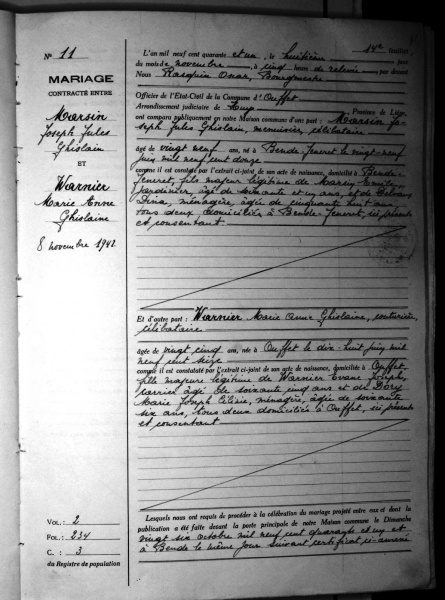 14e feuillet
N° 11
MARIAGE
CONTRACTÉ ENTRE
Marsin
Joseph Jules
Ghislain
ET
Warnier
Marie Anne
Ghislaine
8 novembre 1941
VOL.: 2
FOL.: 234
C. : 3
du Registre de population
L'an mil neuf cent quarante et un, le huitième jour
du mois de novembre, à cinq heures de relevée, par devant
Nous Rasquin Omer, Bourgmestre
Officier de l'Etat-Civil de la Commune d'Ouffet
Arrondissement judiciaire de Huy, Province de Liége,
ont comparu publiquement en notre Maison commune d'une part : Marsin Jo-
seph Jules Ghislain, menuisier, célibataire
âgé de vingt neuf ans, né à Bende-Jeneret le vingt-neuf
juin mil neuf cent douze
comme il est constaté par l'extrait ci-joint de son acte de naissance, domicilié à Bende-
Jeneret, fils majeur légitime de Marsin Emile,
jardinier, âgé de soixante et un ans et de
Dina, ménagère, âgée de cinquante huit ans,
tous deux domiciliés à Bende-Jeneret, ici présents
et consentant
Et d'autre part : Warnier Marie Anne Ghislaine, couturière,
célibataire
âgée de vingt cinq ans, née à Ouffet le dix huit juin mil
neuf cent seize
comme il est constaté par l'extrait ci-joint de son acte de naissance, domiciliée à Ouffet,
fille majeure légitime de Warnier Joseph,
carrier, âgé de soixante cinq ans et de Dory
Marie Joseph Célinie, ménagère, âgée de soixante
six ans, tous deux domiciliés à Ouffet, ici présents
et consentant
Lesquels nous ont requis de procéder à la célébration du mariage projeté entre eux et dont la
publication a été faite devant la porte principale de notre Maison commune le Dimanche
vingt six octobre mil neuf cent quarante et un et
à Bende le même jour suivant certificat ci-annexé